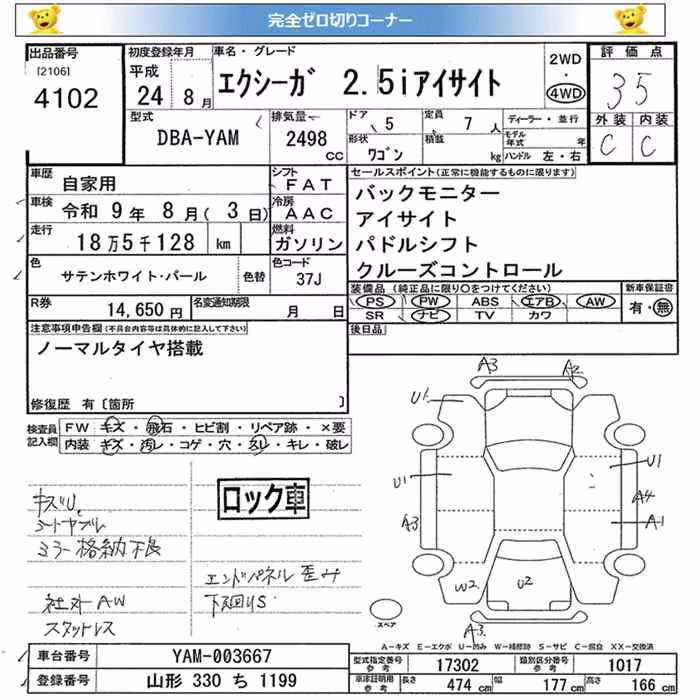 完全ゼロ切りコーナー
出品番号 初度登録年月 車名・グレード 評価点
[2106] 平成 2WD
4102 24 8月 エクシーガ 2.5iアイサイト ・ 35
4WD
型式 排気量 ドア 5 定員 7人 ディーラー・並行 外装 内装
DBA-YAM 2498 cc 形状 ワゴン 積載 kg モデル年式 年 C C
ハンドル 左・右
車歴 自家用 シフト FAT セールスポイント(正常に機能するものに限ります)
車検 令和 9年 8月( 3日) 冷房 AAC バックモニター
走行 18万5千128 km 燃料 ガソリン アイサイト
パドルシフト
色 サテンホワイト・パール 色替 色コード 37J クルーズコントロール
R券 14,650円 名変通知期限 月 日 装備品(純正品に限り○をつけてください) 新車保証書
PS PW ABS エアB AW 有・無
SR ナビ TV カワ
注意事項申告欄(不具合内容等は具体的に記入して下さい) 後日品
ノーマルタイヤ搭載
修復歴 有〔箇所 〕
検査員記入欄 FW キズ・飛石・ヒビ割・リペア跡・×要
内装 キズ・汚レ・コゲ・穴・スレ・キレ・破レ
A3 A2
U1
U1 U1
A3 A4
A1
W2 U2
A3
スペア
キズU
シートヤブレ
ミラー格納不良
社外AW
スタットレス
ロック車
エンドパネル歪み
下廻りS
A=キズ E=エクボ U=凹み W=補修跡 S=サビ C=腐食 XX=交換済
車台番号 YAM-003667 型式指定番号 参考 17302 類別区分番号 参考 1017
登録番号 山形 330 ち 1199 車庫証明用 参考 長さ 474cm 幅 177cm 高さ 166cm